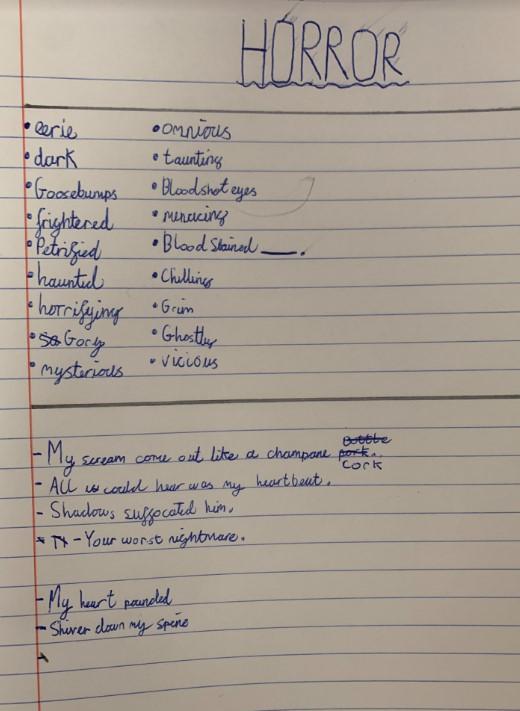 HORROR
• eerie • omnious
• dark • taunting
• Goosebumps • Bloodshot eyes
• frightered • menacing
• Petrified • Blood Stained ___.
• haunted • Chilling
• horrifying • Grim
• Gory • Ghostly
• mysterious • vicious
- My scream come out like a champane
cork
- All could hear was my heartbeat.
- Shadows suffocated him.
- Your worst nightmare.
- My heart pounded
- Shiver down my spine